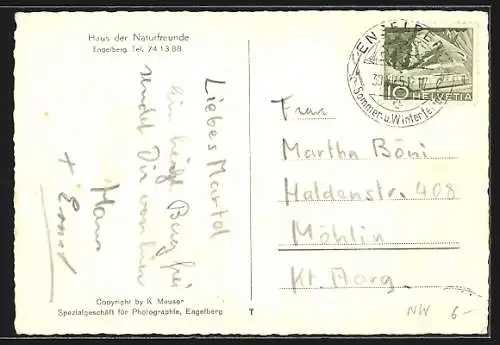 Haus der Naturfreunde
Engelberg. Tel. 74 13 88
Liebes Martel
Ein herzl Berg frei
sendet Dir von hier
Hans
+ Ernst
Copyright by K. Meuser
Spezialgeschäft für Photographie, Engelberg
T
ENGELBERG
Sommer- u. Winter
10
HELVETIA
Frau
Martha Böni
Haldenstr. 408
Möhlin
Kt. Aarg.
NW 6.-